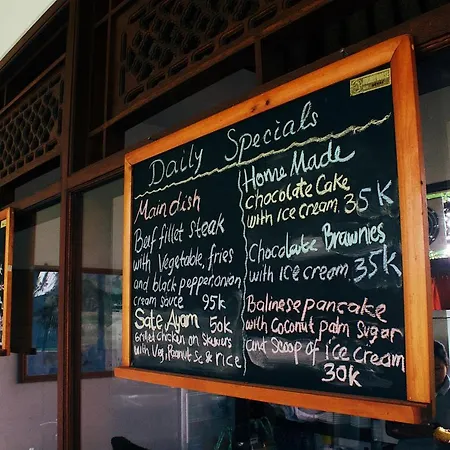 Daily Specials
Main dish
Beef fillet steak
with Vegetable, fries
and black pepper, onion
cream sauce 95k
Sate Ayam 50k
Grilled chicken on skewers
with Veg, Peanut Sc & rice
Home Made
Chocolate Cake
with Ice cream 35k
Chocolate Brawnies
with Ice cream 35k
Balinese pancake
with Coconut palm Sugar
and Scoop of ice cream
30k